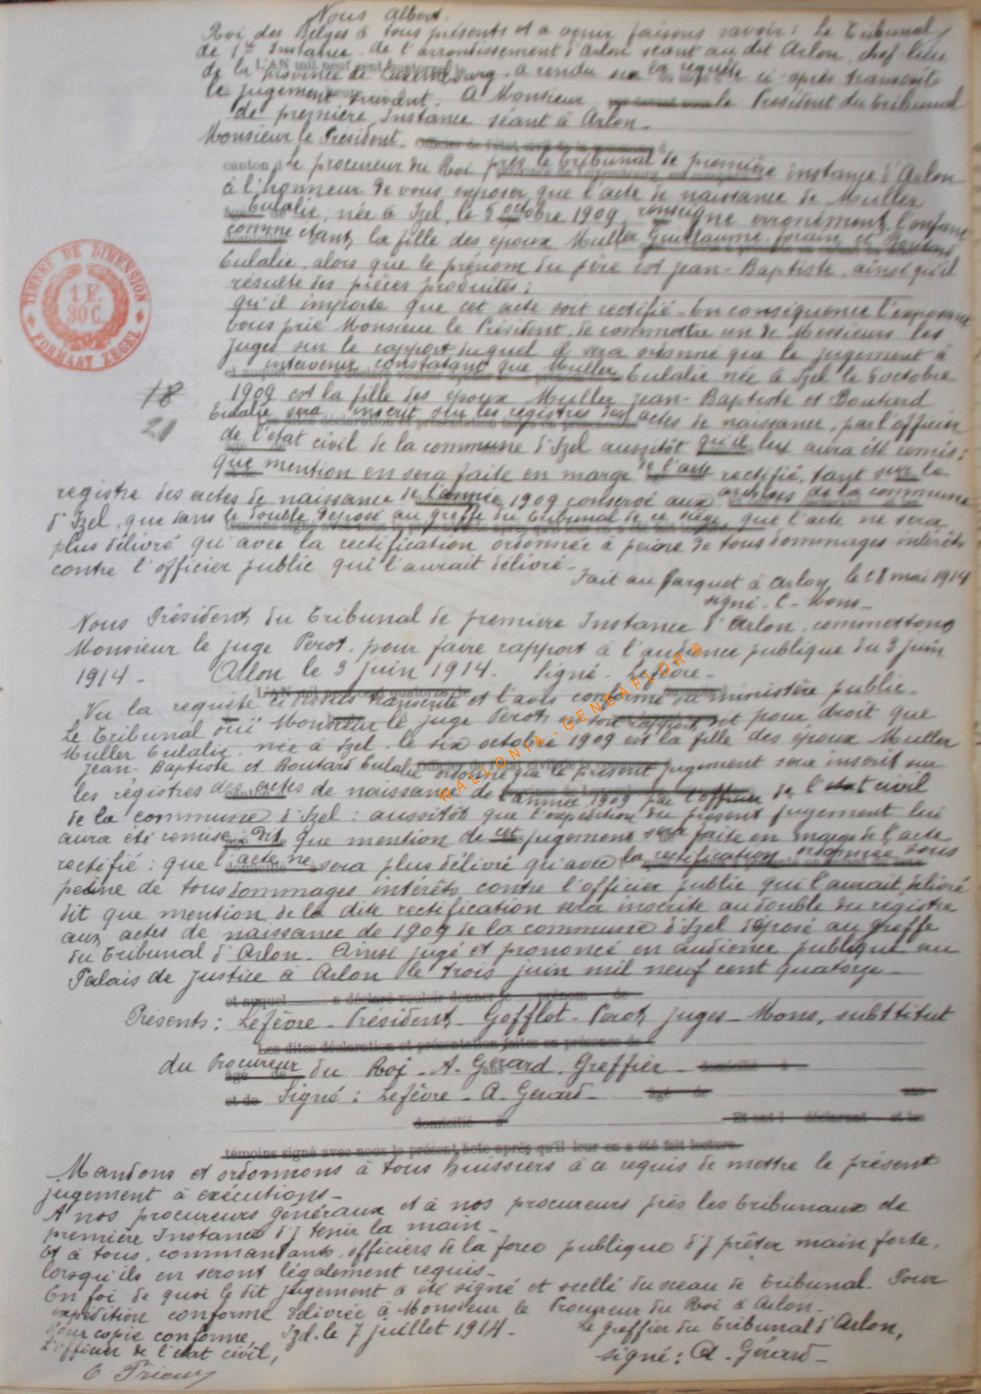 Nous Albert.
Roi des Belges à tous présents et a venir faisons savoir : Le Tribunal
de 1re Instance de l'arrontissement d'Arlon séant au dit Arlon, chef lieu
de la province de Luxembourg, a rendu sur la requête ci-après transcrite
le jugement suivant. A Monsieur le Président du tribunal
de première Instance séant à Arlon.
Monsieur le Président.
Le procureur du Roi près le tribunal de première instance d'Arlon
à l'honneur de vous exposer que l'acte de naissance de Muller
Eulalie, née à Izel, le 5 octobre 1909, renseigne erronément l'enfant
comme etant la fille des époux Muller Guillaume forain et Boutard
Eulalie, alors que le prénom du père est Jean-Baptiste, ainsi qu'il
résulte des pièces produites ;
qu'il importe que cet acte soit rectifié. En conséquence l'exposant
vous prie Monsieur le Président, de commettre un de Messieurs les
Juges sur le rapport duquel il sera ordonné que le jugement à
intervenir constatant que Muller Eulalie née à Izel le 5 octobre
1909 est la fille des époux Muller Jean-Baptiste et Boutard
Eulalie sera inscrit sur les registres des actes de naissance, par l'officier
de l'état civil de la commune d'Izel aussitôt qu'il lui aura été remis ;
que mention en sera faite en marge de l'acte rectifié, tant sur le
registre des actes de naissance de l'année 1909 conservé aux archives de la commune
d'Izel, que dans le double déposé au greffe du tribunal de ce siège, que l'acte ne sera
plus délivré qu'avec la rectification ordonnée à peine de tous dommages intérêts
contre l'officier public qui l'aurait délivré.
Fait au Parquet à Arlon, le 28 mai 1914
signé. C. Mons.
18
21
TIMBRE DE DIMENSION
1 F.
30 C.
FORMAAT ZEGEL
Nous Président du tribunal de première Instance d'Arlon, commettons
Monsieur le juge Perot, pour faire rapport à l'audience publique du 3 juin
1914. Arlon le 3 juin 1914. Signé. Lefèvre.
Vu la requête ci-dessus transcrite et l'avis conforme du ministère public.
Le Tribunal ouï Monsieur le juge Perot, en son rapport et pour droit que
Muller Eulalie née à Izel le six octobre 1909 est la fille des époux Muller
Jean-Baptiste et Boutard Eulalie ordonne que le présent jugement sera inscrit sur
les registres des actes de naissance de l'année 1909 par l'officier de l'état civil
de la commune d'Izel : aussitôt que l'expédition du présent jugement lui
aura été remise, dit que mention de cet jugement sera faite en marge de l'acte
rectifié : que l'acte ne sera plus délivré qu'avec la rectification ordonnée sous
peine de tous dommages intérêts contre l'officier public qui l'aurait délivré
dit que mention de la dite rectification sera inscrite au double du registre
aux actes de naissance de 1909 de la commune d'Izel déposé au greffe
du tribunal d'Arlon. Ainsi jugé et prononcé en audience publique au
Palais de justice à Arlon le trois juin mil neuf cent quatorze.
et auquel a déclaré vouloir donner le prénom de
Présents : Lefèvre. Président. Gofflot. Perot, juges. Mons, substitut
Les dites déclaration et présentation faites en présence de
du Procureur du Roi. A. Gérard. Greffier. domicilié à
et de Signé : Lefèvre. A. Gérard. âgé de
domicilié à Et ont l déclarant et les
témoins signé avec nous le présent acte après qu'il leur en a été fait lecture.
Mandons et ordonnons à tous huissiers à ce requis de mettre le présent
jugement à exécutions.
A nos procureurs généraux et à nos procureurs près les tribunaux de
première Instance d'y tenir la main.
Et à tous, commandants, officiers de la force publique d'y prêter main forte,
lorsqu'ils en seront légalement requis.
En foi de quoi le dit jugement a été signé et scellé du sceau de tribunal. Pour
expédition conforme délivrée à Monsieur le Procureur du Roi à Arlon.
Pour copie conforme, Izel. le 7 juillet 1914. Le greffier du tribunal d'Arlon,
L'officier de l'état civil, signé : A. Gérard.
WALLONIA-GENEAFLOR®